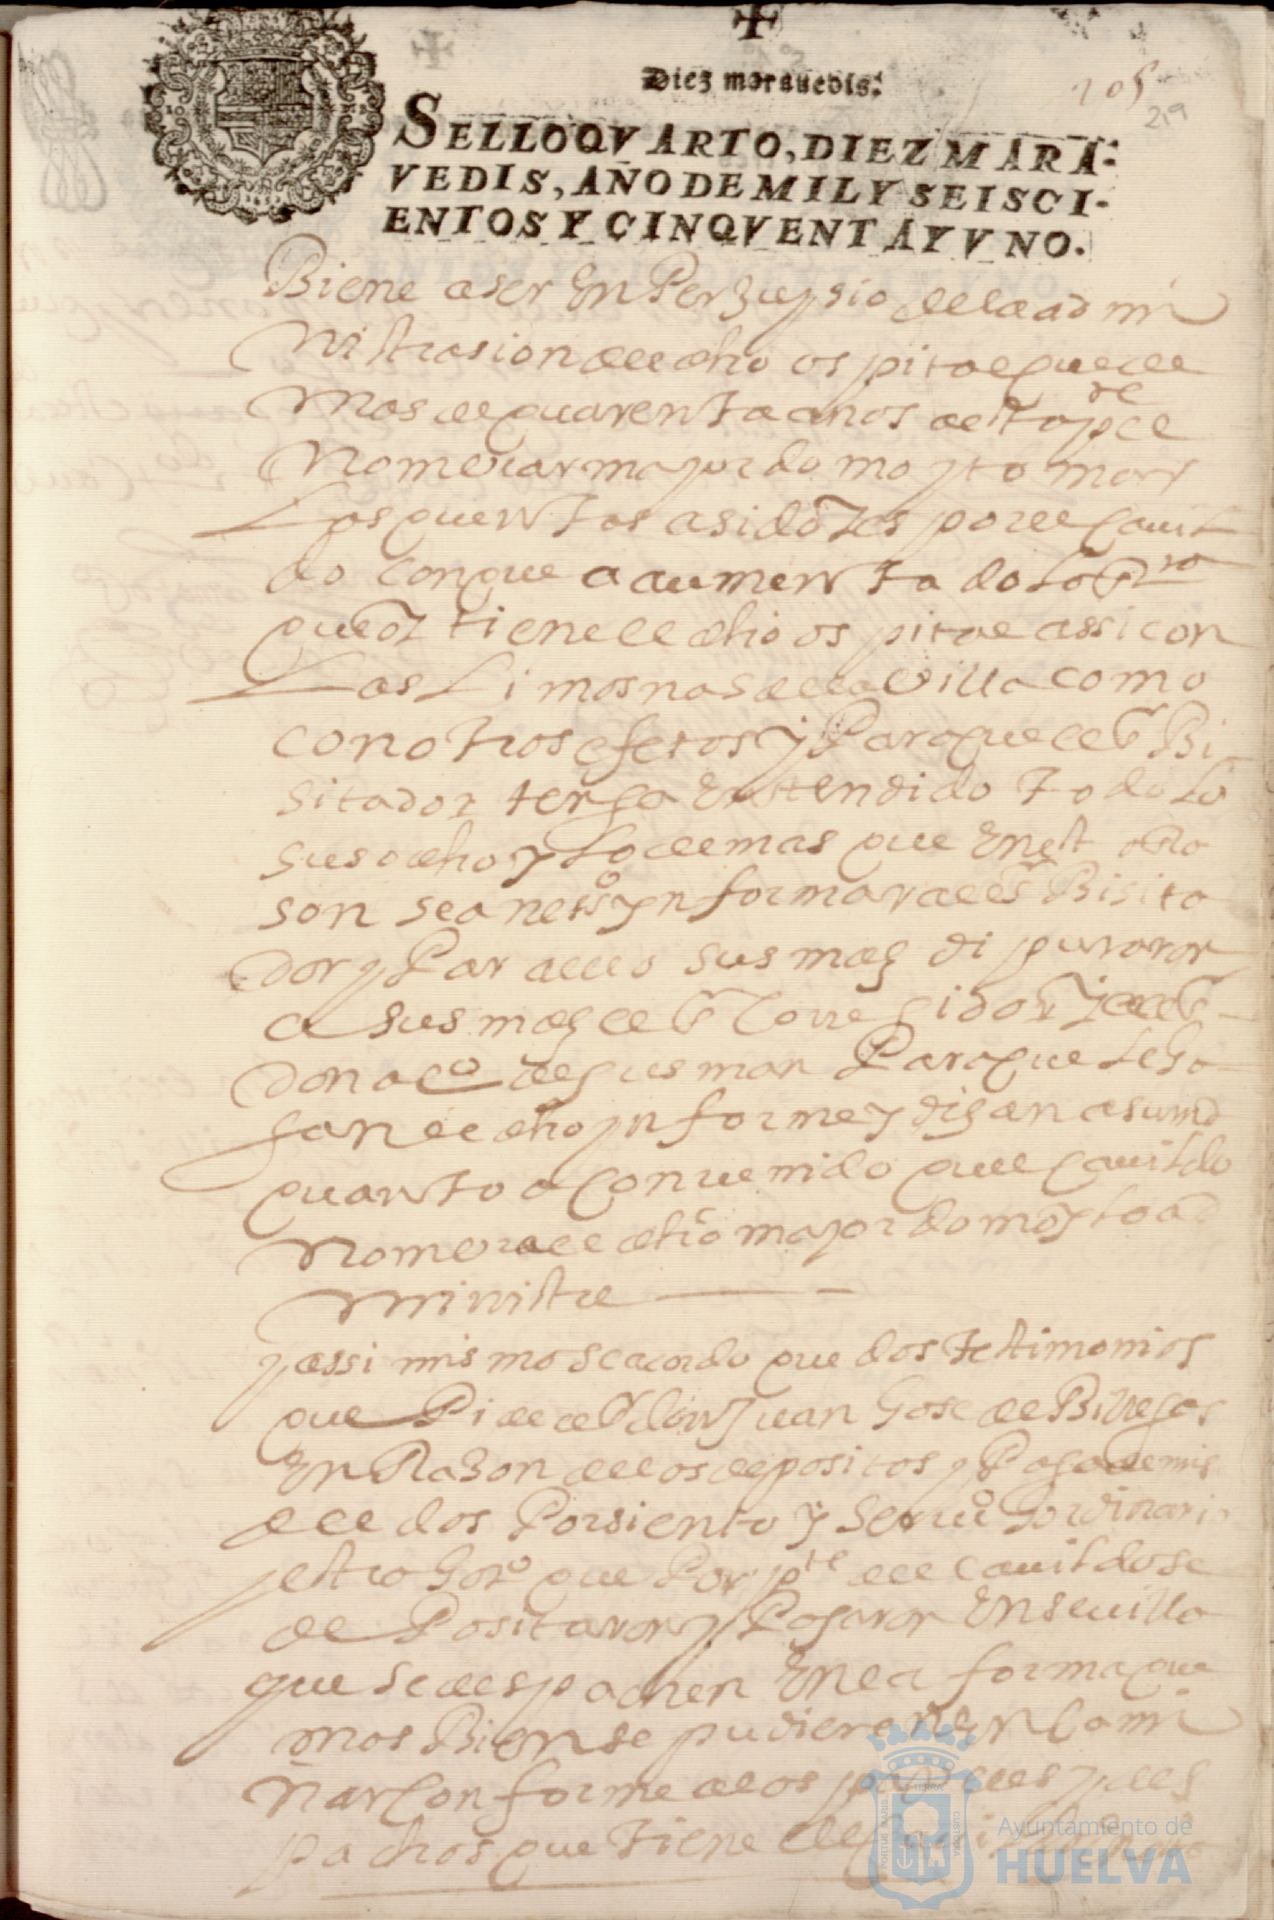 Diez marauedis.
105
219
SELLO QVARTO, DIEZ MARA-
VEDIS, AÑO DE MIL Y SEISCI-
ENTOS Y CINQVENTA Y VNO.
Biene a ser En Perjuysio de la admi
nistrasion del dho ospital que de
mas de quarenta anos desta pte
nombrar mayordomo y tomar
las quentas a sido es por el cauil
do con que a aumentado
que oy tiene el dho ospital assi con
las Limosnas de la villa como
con otros efetos y Para que el sr Bi
sitador tenga Entendido todo lo
susodho y lo demas que En est
son sea nesso ynformar al sr Bisita
dor y Para ello sus mds diputaron
a sus mds el sr Corregidor y al sr
don alo de gusman Para que le ha
gan el dho ynforme y digan a su md
quanto a conuenido que el cauildo
nombre el dho mayordomo y lo ad
ministre
y assi mismo se acordo que dos testimonios
que Pide el sr don Juan Jose de Billegas
En Razon de los depositos y Paga de mis
del dos Por siento y seruio hordinario
y estrahoro que Por pte del cauildo se
depositaron y Pagaron En seuilla
que se despachen En la forma que
mas Bien se pudieren Encami
nar Conforme a los papeles y des
pachos que tiene el
Ayuntamiento de
HUELVA